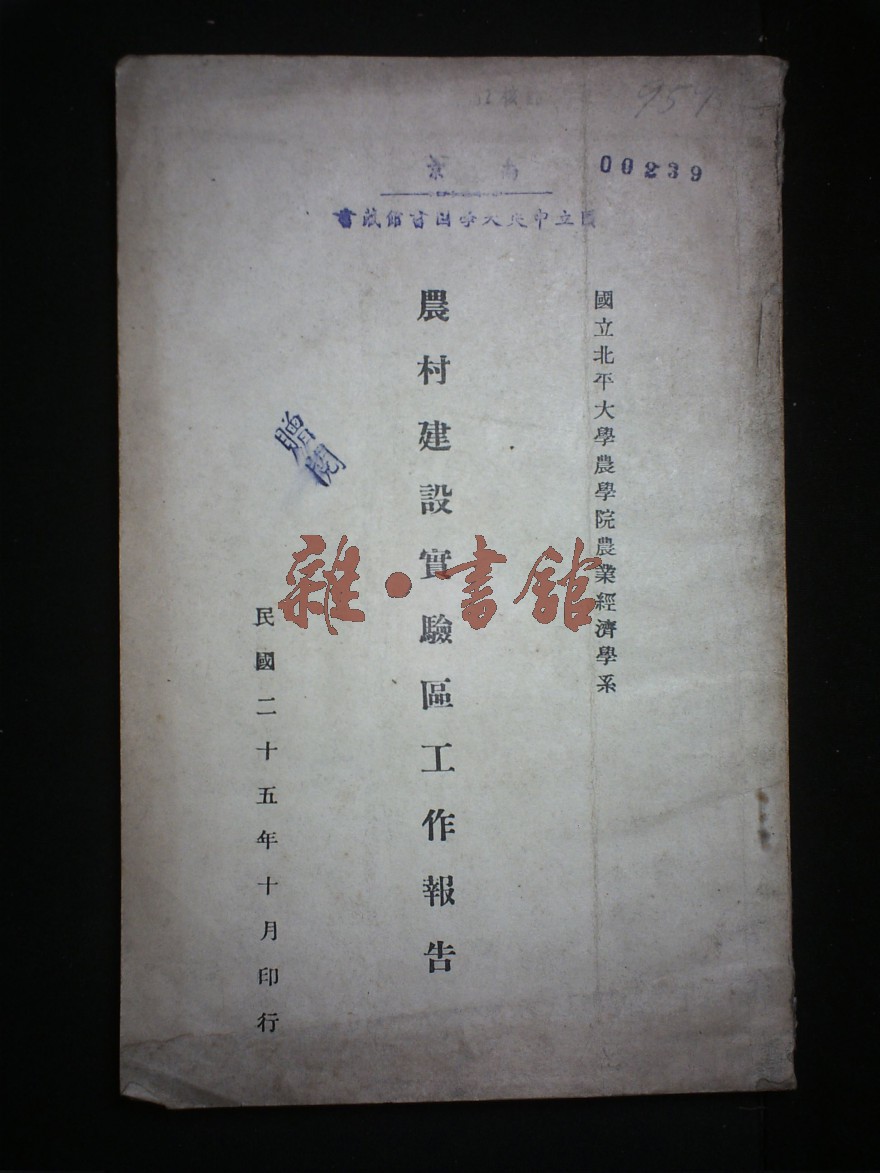 00239
南京
國立中央大學圖書館藏書
國立北平大學農學院農業經濟學系
農村建設實驗區工作報告
贈閱
民國二十五年十月印行
雜·書館